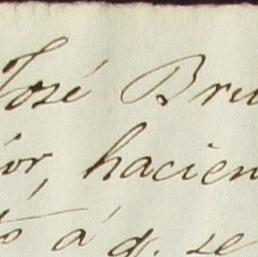 José Bru
or, hacien
tó á q. se